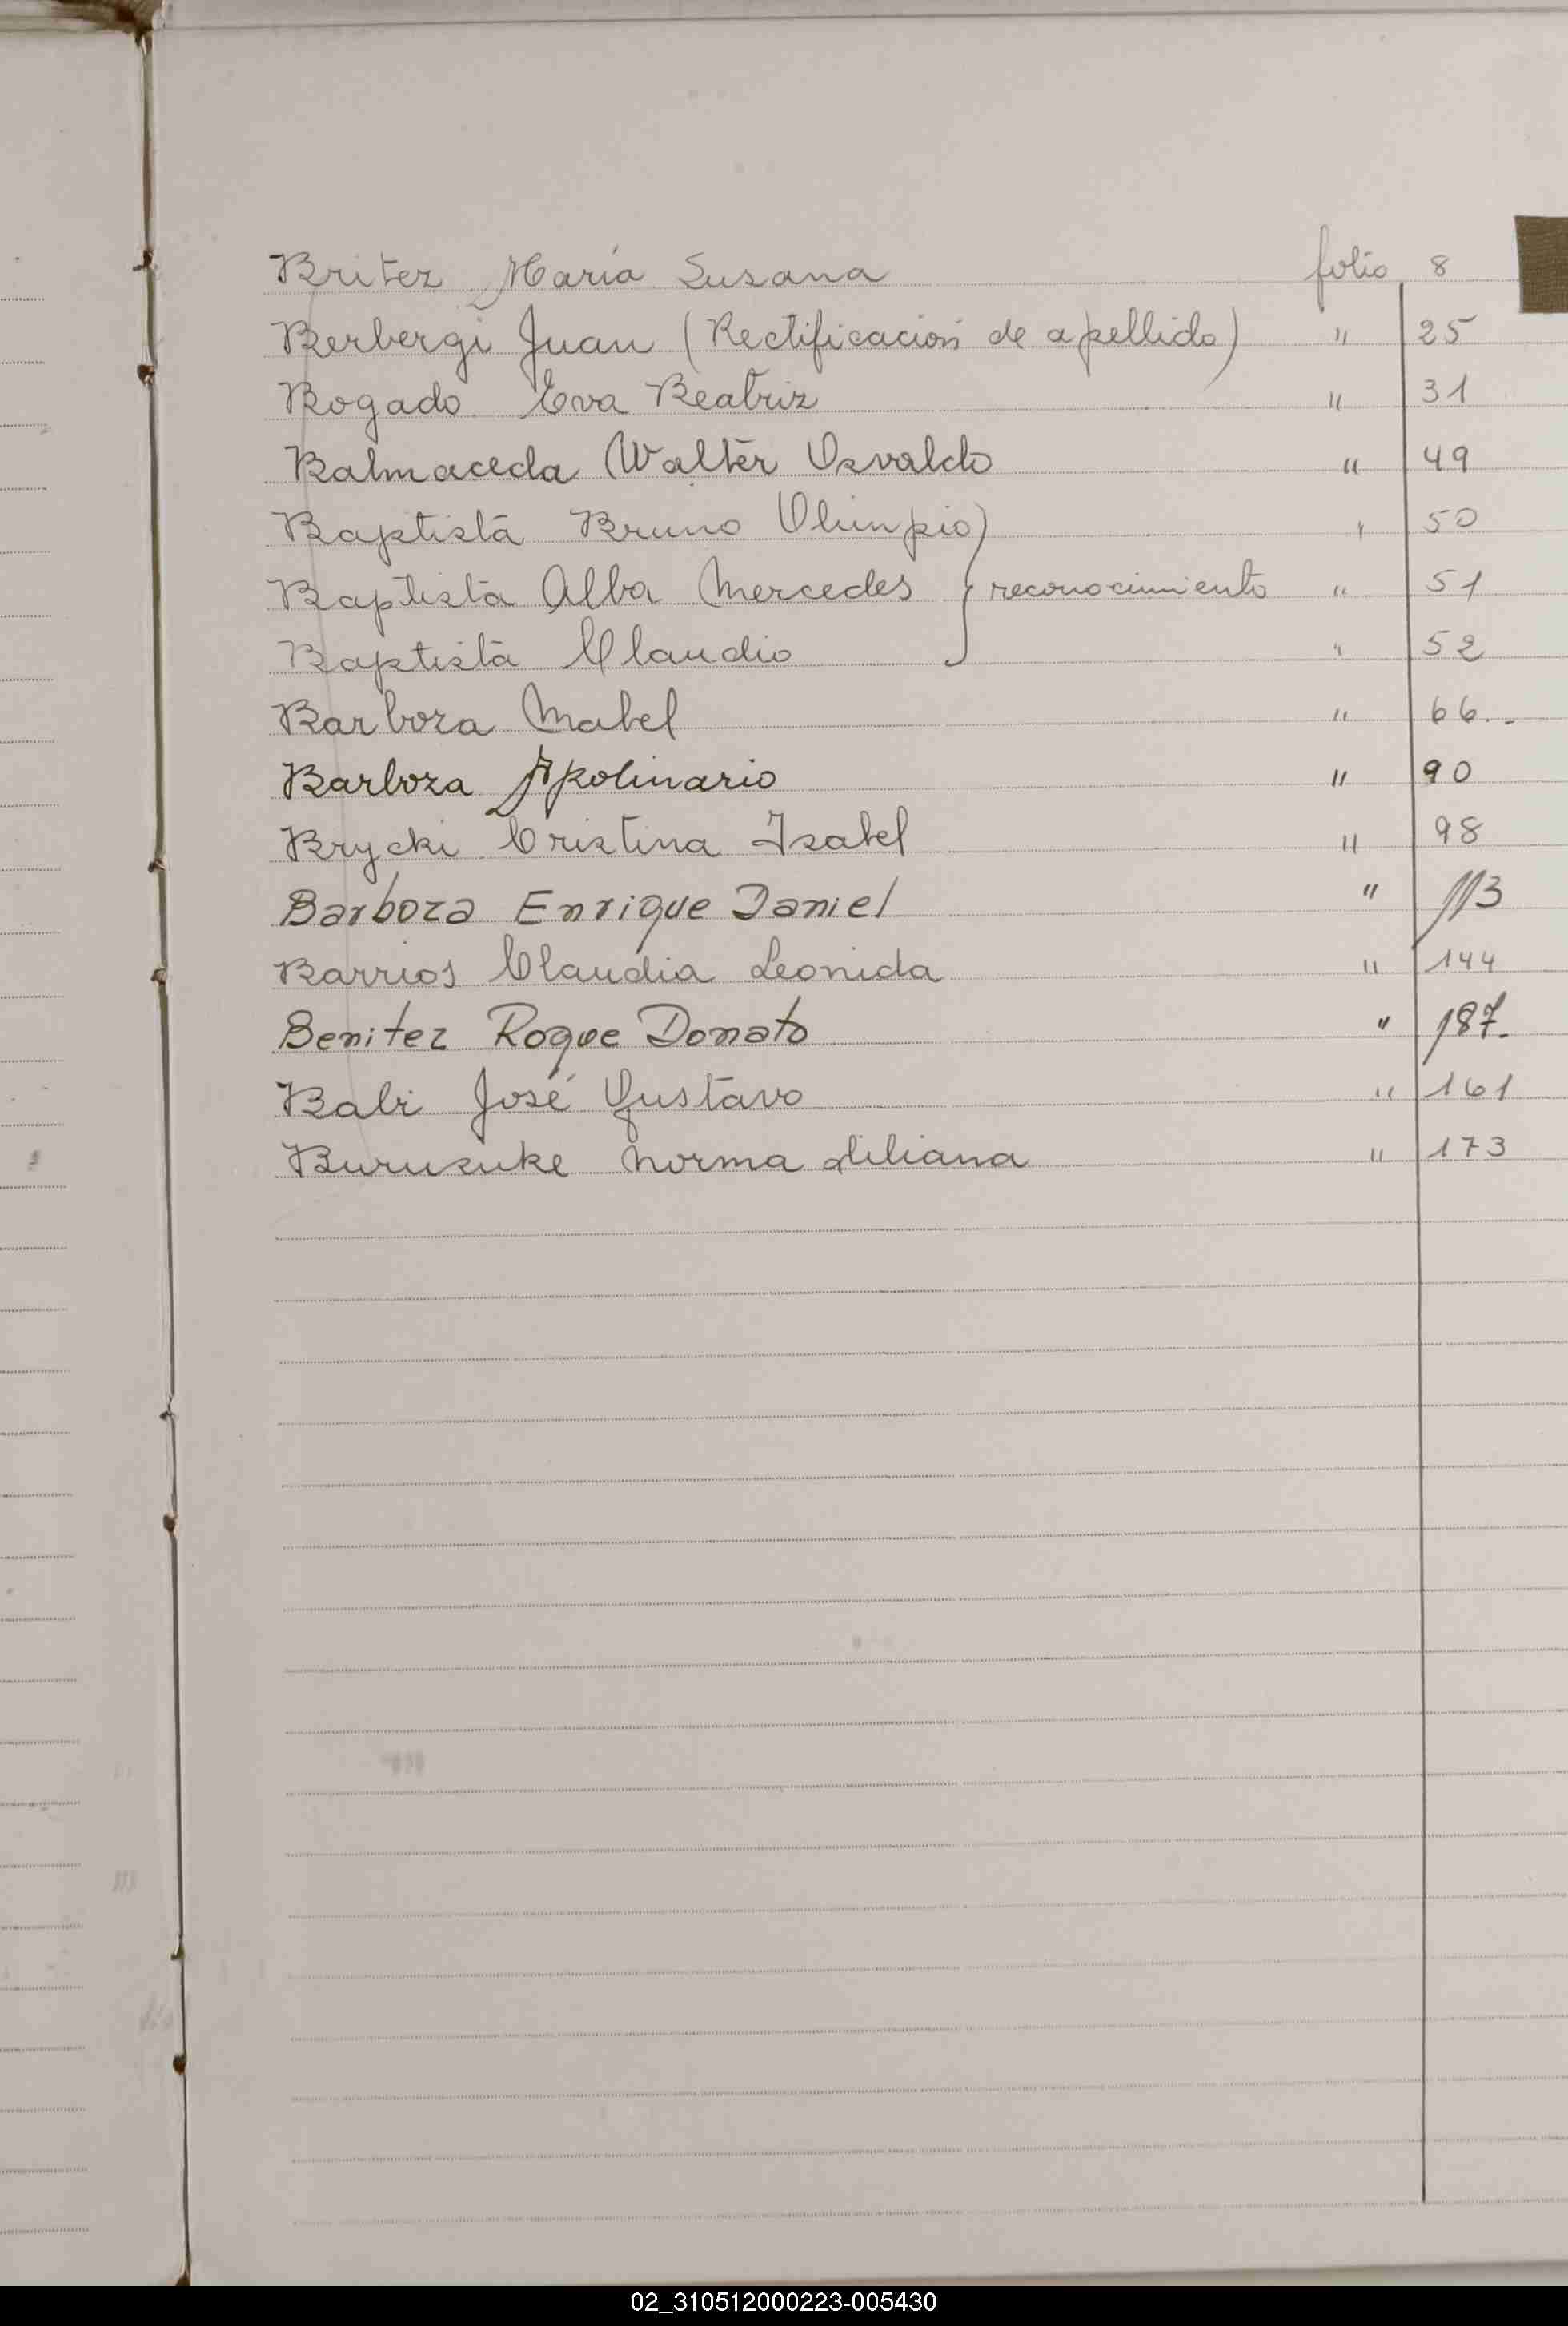 Britez María Susana folio 8
Berbergi Juan (Rectificación de apellido) " 25
Bogado Eva Beatriz " 31
Balmaceda Walter Osvaldo " 49
Baptista Bruno Olimpio ) " 50
Baptista Alba Mercedes } reconocimiento " 51
Baptista Claudio " 52
Barboza Mabel " 66.-
Barboza Apolinario " 90
Brycki Cristina Isabel " 98
Barboza Enrique Daniel " 113
Barrios Claudia Leonida " 144
Benitez Roque Donato " 187.
Balr José Gustavo " 161
Buruzuke Norma Liliana " 173
02_310512000223-005430